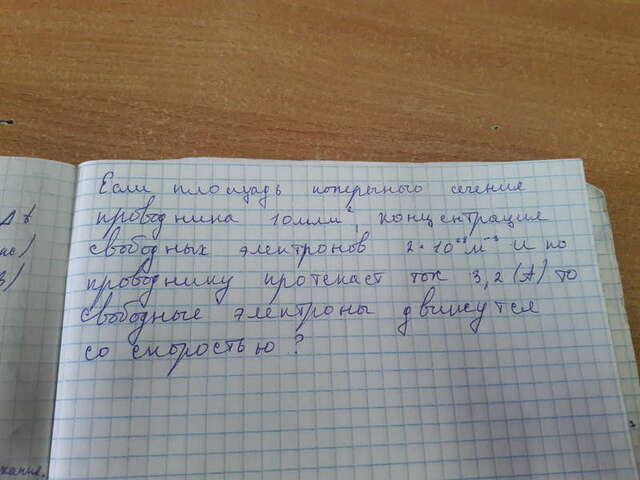 Если площадь поперечного сечения
проводника 10мм², концентрация
свободных электронов 2·10²⁸м⁻³ и по
проводнику протекает ток 3,2 (А) то
свободные электроны движутся
со скоростью?